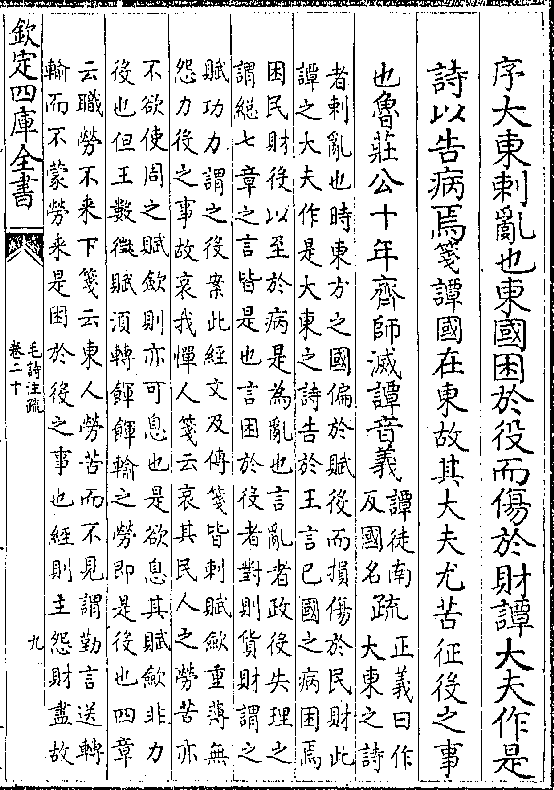 序大東刺亂也東國困於役而傷於財譚大夫作是
詩以告病焉箋譚國在東故其大夫尤苦征役之事
也魯莊公十年齊師滅譚音義
譚徒南
反國名
疏
正義曰作
大東之詩
者刺亂也時東方之國偏於賦役而損傷於民財此
譚之大夫作是大東之詩告於王言已國之病困焉
困民財役以至於病是為亂也言亂者政役失理之
謂総七章之言皆是也言困於役者對則貨財謂之
賦功力謂之役案此經文及傳箋皆刺賦斂重薄無
怨力役之事故哀我憚人箋云哀其民人之勞苦亦
不欲使周之賦斂則亦可息也是欲息其賦斂非力
役也但王數徴賦須轉餫餫輸之勞即是役也四章
云職勞不来下箋云東人勞苦而不見謂勤言送轉
輸而不蒙勞来是困於役之事也經則主怨財盡故
欽定四庫全書
毛詩注疏
卷二十
九